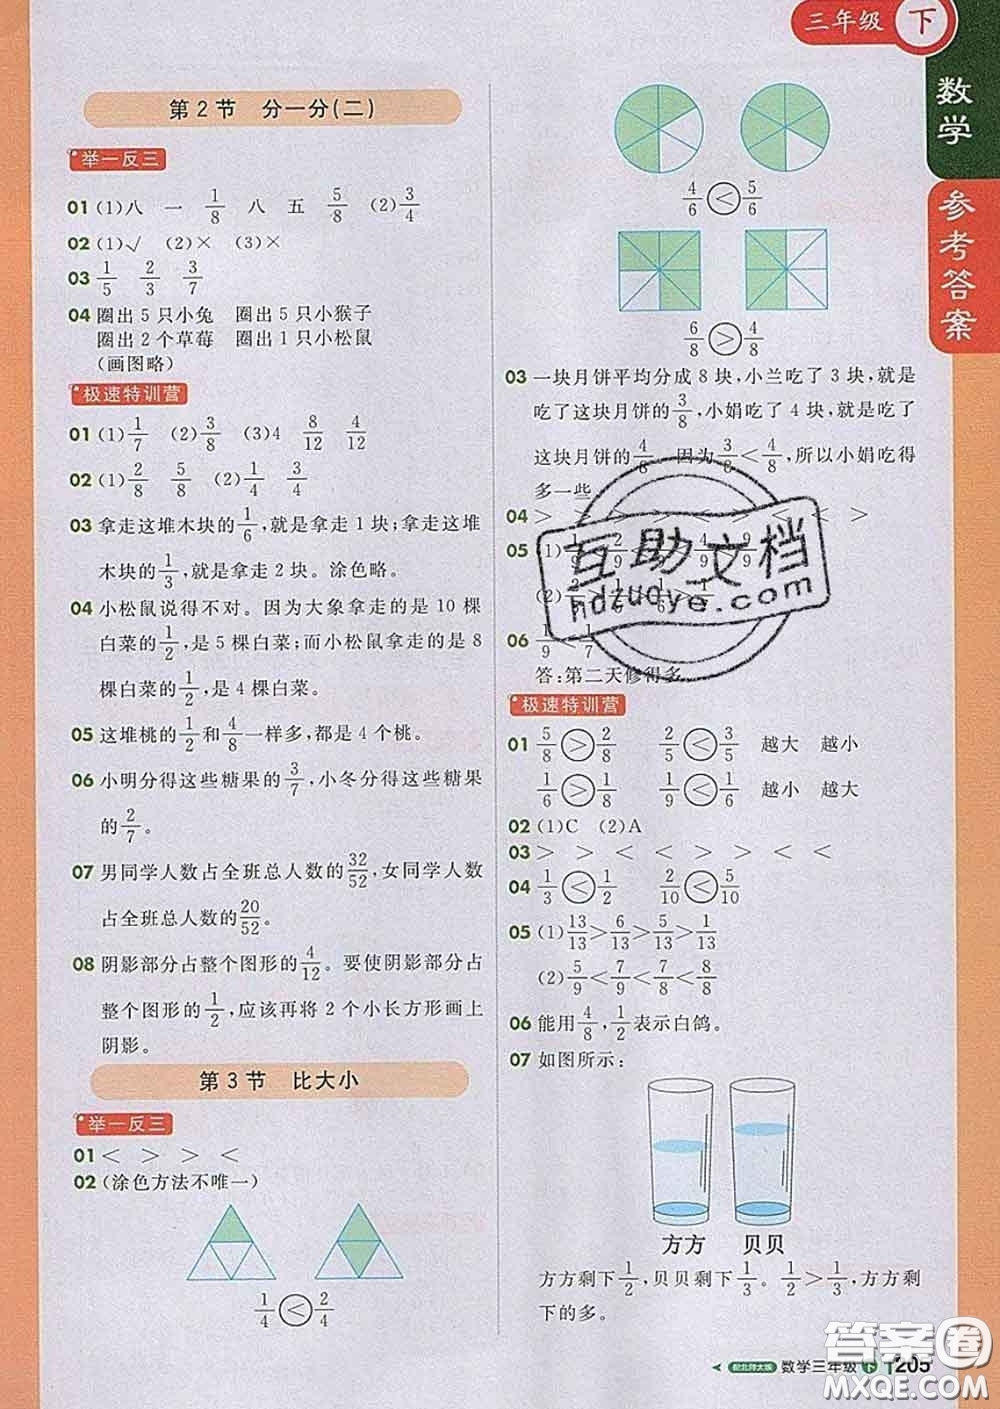 三年级 下
数学
参考答案
第2节 分一分(二)
举一反三
01 (1)八 一 1/8 八 五 5/8 (2)3/4
02 (1)√ (2)× (3)×
03 1/5 2/3 3/7
04 圈出5只小兔 圈出5只小猴子
圈出2个草莓 圈出1只小松鼠
(画图略)
极速特训营
01 (1)1/7 (2)3/8 (3)4 8/12 4/12
02 (1)2/8 5/8 (2)1/4 3/4
03 拿走这堆木块的1/6,就是拿走1块;拿走这堆
木块的1/3,就是拿走2块。涂色略。
04 小松鼠说得不对。因为大象拿走的是10棵
白菜的1/2,是5棵白菜;而小松鼠拿走的是8
棵白菜的1/2,是4棵白菜。
05 这堆桃的1/2和4/8一样多,都是4个桃。
06 小明分得这些糖果的3/7,小冬分得这些糖果
的2/7。
07 男同学人数占全班总人数的32/52,女同学人数
占全班总人数的20/52。
08 阴影部分占整个图形的4/12。要使阴影部分占
整个图形的1/2,应该再将2个小长方形画上
阴影。
第3节 比大小
举一反三
01 < > > <
02 (涂色方法不唯一)
1/4 < 2/4
4/6 < 5/6
6/8 > 4/8
03 一块月饼平均分成8块,小兰吃了3块,就是
吃了这块月饼的3/8,小娟吃了4块,就是吃了
这块月饼的4/8。因为3/8<4/8,所以小娟吃得
多一些
04 > > < >
05 (1)1/9 2/9 4/9
(2)
06 1/9<1/7
答:第二天修得多
极速特训营
01 5/8 > 2/8 2/5 < 3/5 越大 越小
1/6 > 1/8 1/9 < 1/6 越小 越大
02 (1)C (2)A
03 > > < < > > < <
04 1/3 < 1/2 2/10 < 5/10
05 (1)13/13>6/13>5/13>1/13
(2)5/9<7/9<7/8<8/8
06 能用4/8,1/2表示白鸽。
07 如图所示:
方方 贝贝
方方剩下1/2,贝贝剩下1/3。1/2>1/3,方方剩
下的多。
互助文档
hdzuoye.com
配北师大版 数学三年级 下 205
答案圈
MXQE.COM